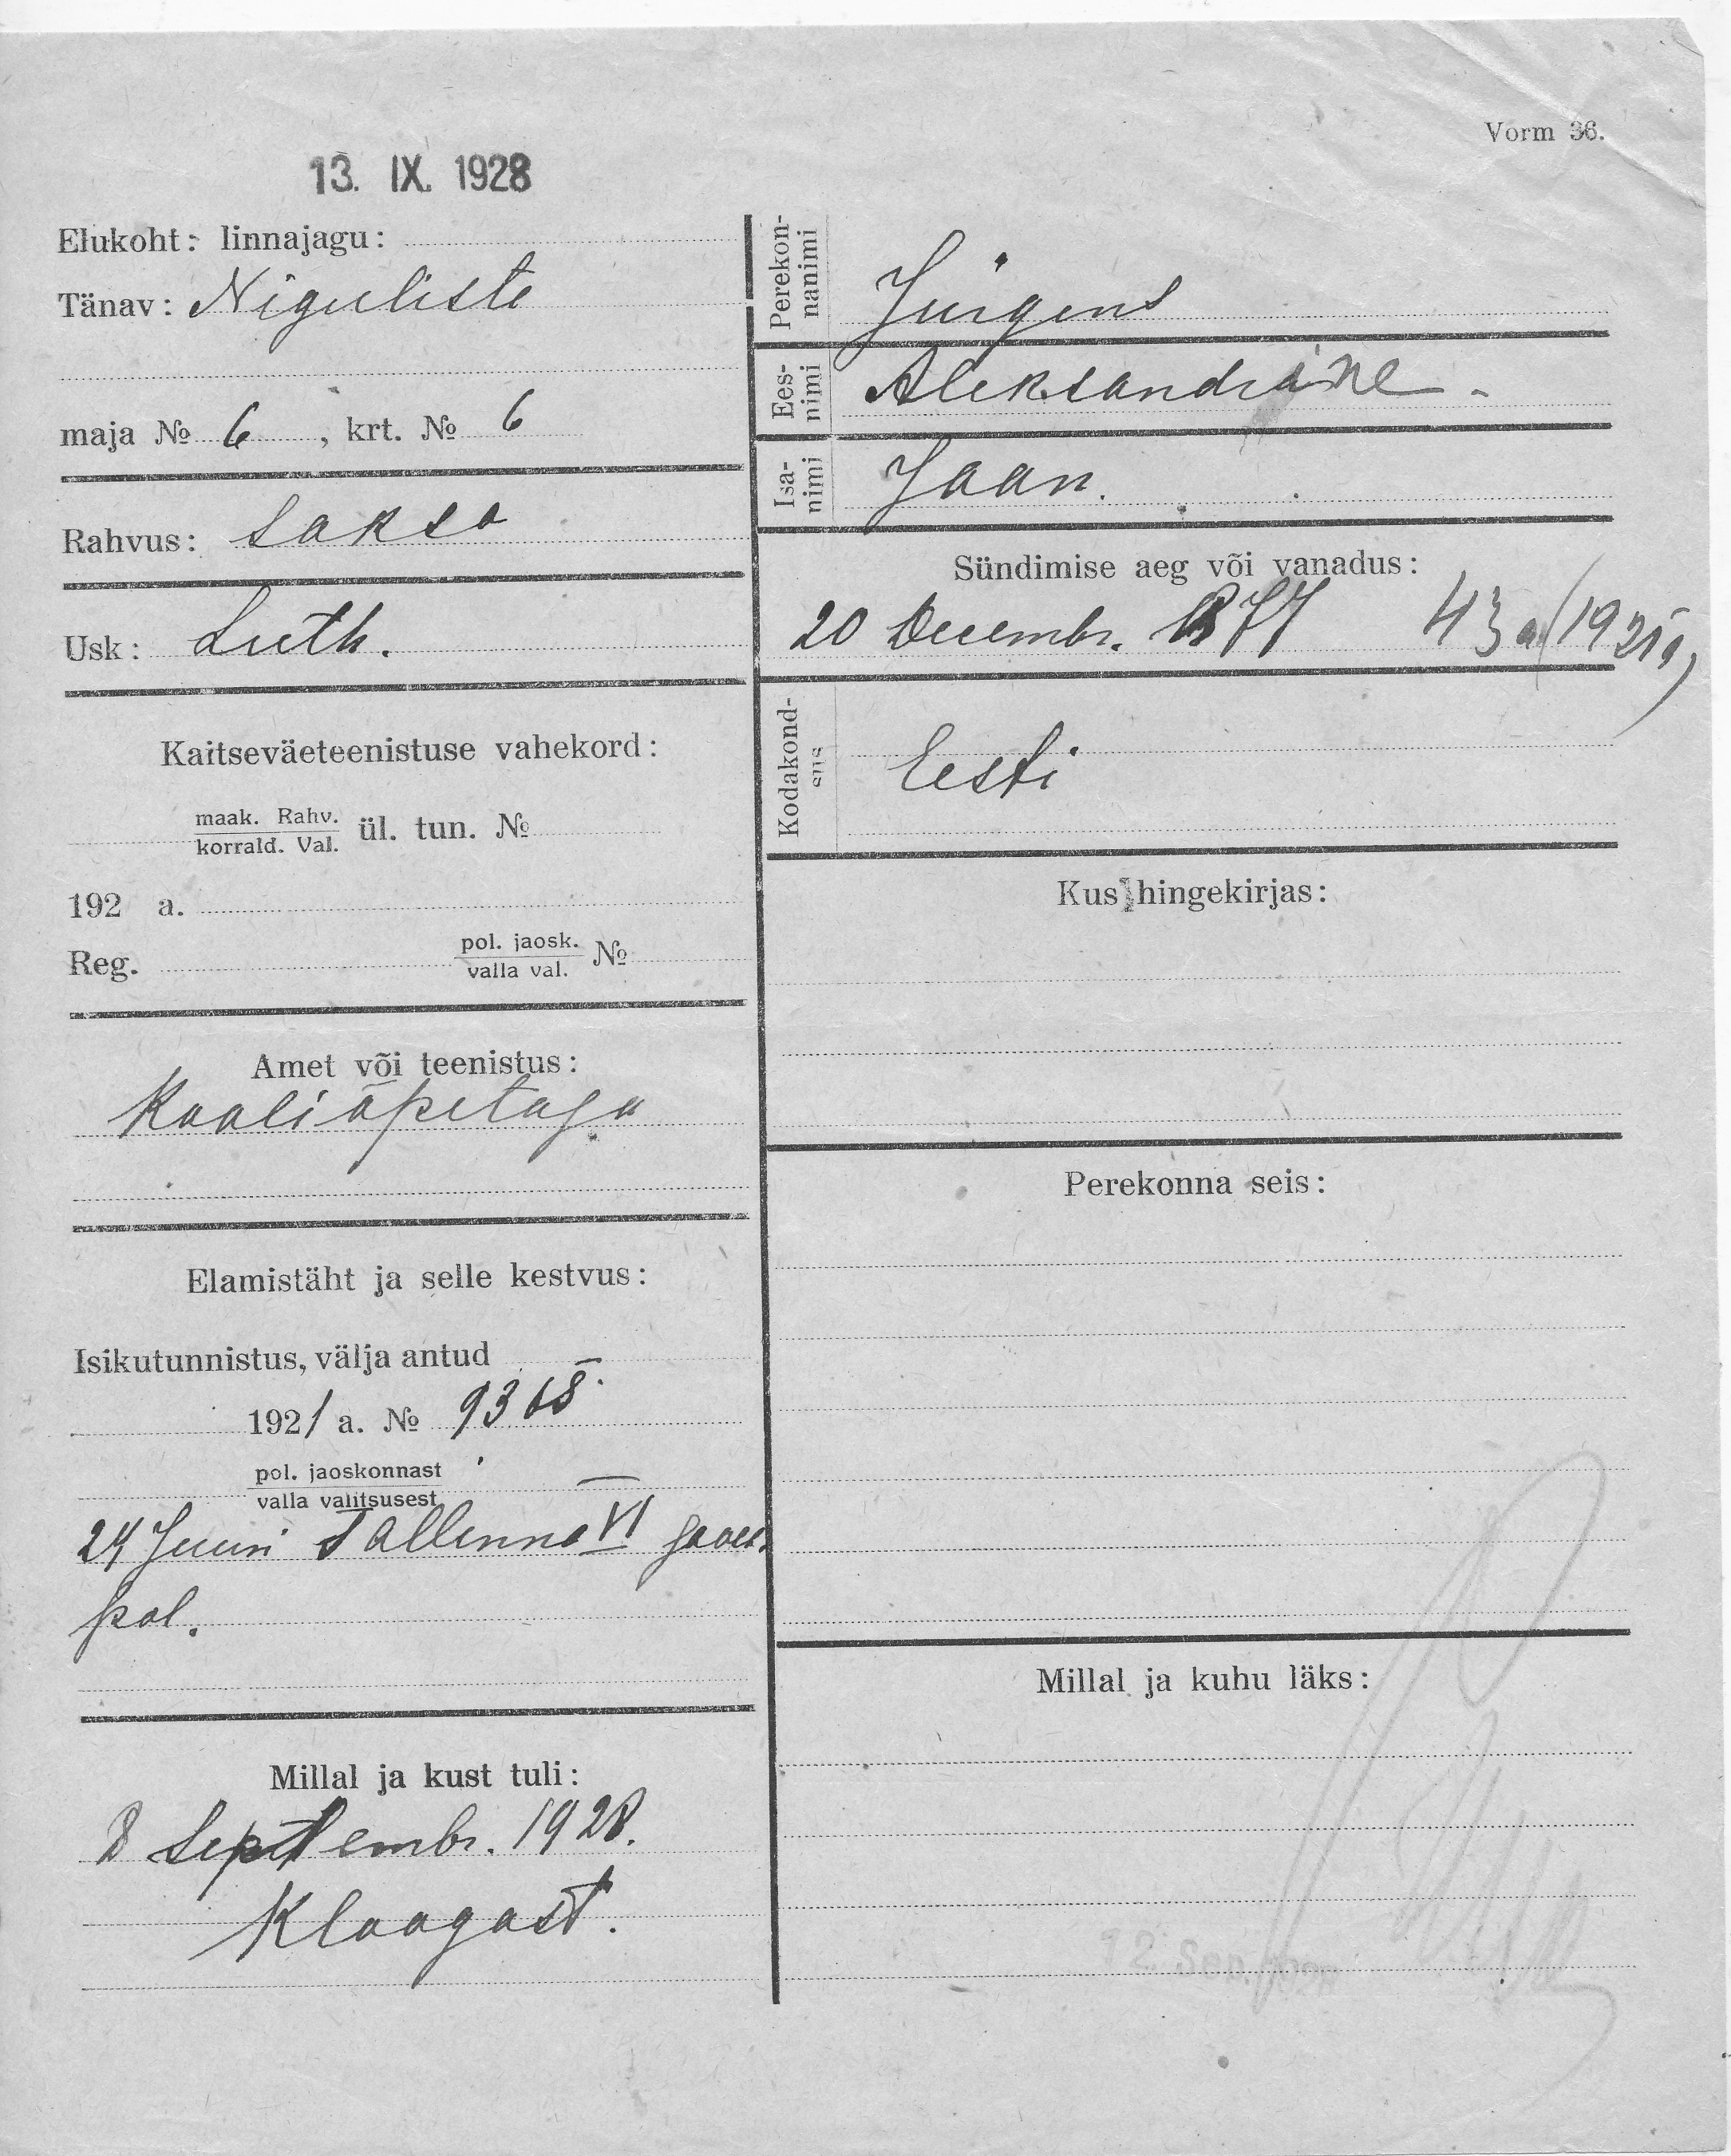 Vorm 36.
13. IX. 1928
Elukoht: linnajagu:
Tänav: Niguliste
maja № 6, krt. № 6
Rahvus: saksa
Usk: Luth.
Kaitseväeteenistuse vahekord:
maak. Rahv.
korrald. Val. ül. tun. №
192 a.
Reg. pol. jaosk.
valla val. №
Amet või teenistus:
Kooliõpetaja
Elamistäht ja selle kestvus:
Isikutunnistus, välja antud
1921 a. № 9368
pol. jaoskonnast
valla valitsusest
24 Juuni Tallinna VI
pol.
Millal ja kust tuli:
8 Septembr. 1928.
Kloogast.
Perekonnanimi
Jürgens
Eesnimi
Aleksandrine
Isanimi
Jaan.
Sündimise aeg või vanadus:
20 Decembr. 1877 43 a (1921 a)
Kodakondsus
Eesti
Kus hingekirjas:
Perekonna seis:
Millal ja kuhu läks:
12. Sep.